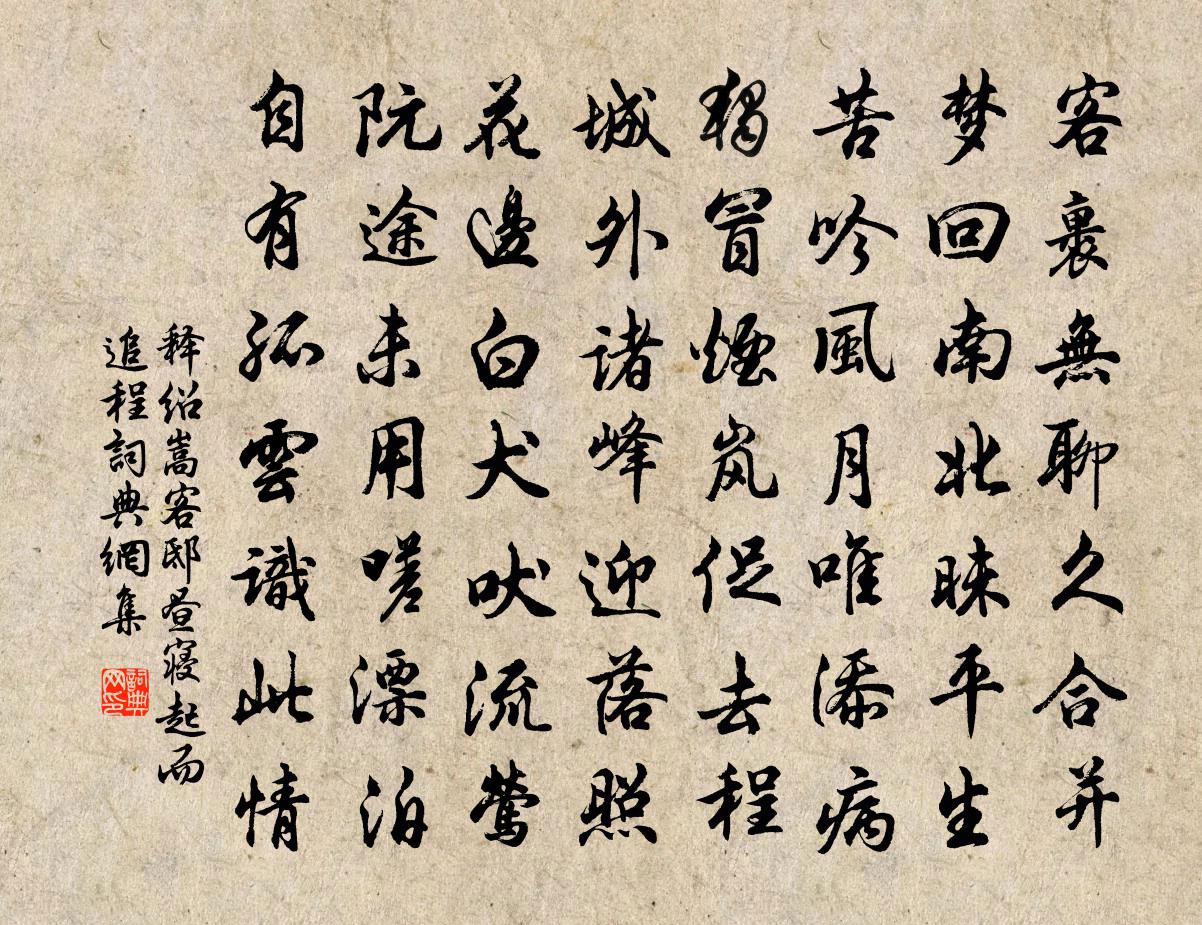 客裏無聊久合并
梦回南北昧平生
苦吟風月唯添病
独冒煙岚促去程
城外诸峰迎落照
花邊白犬吠流莺
阮途未用嗟漂泊
自有孤雲識此情
释绍嵩客邸昼寝起而
追程詞典網集
詞典网印